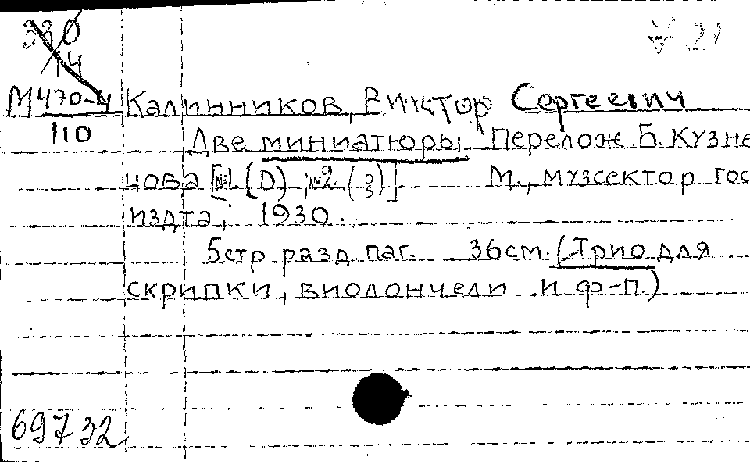 330
14
М470-4
110
Калинников, Виктор Сергеевич
Две миниатюры Перелож Б. Кузне
цова [№1 (D) №2 (3)] М., музсектор гос
издта, 1930.
5стр разд. паг. 36см. (Трио для
скрипки, виолончели и ф-п.)
69732